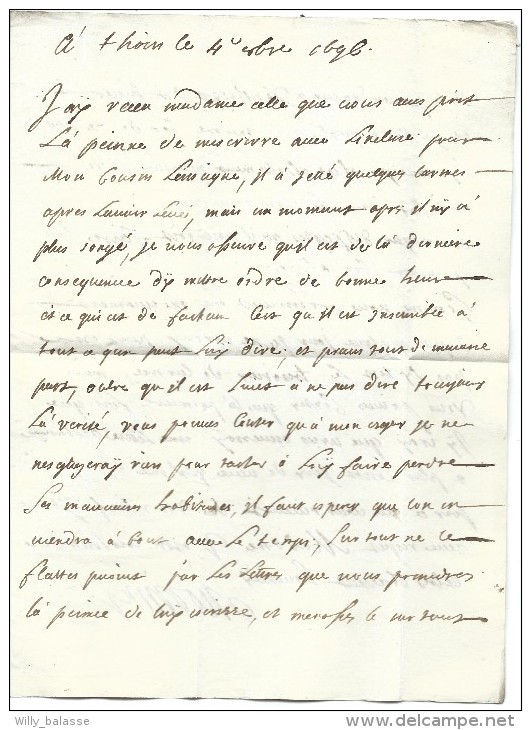 A thoin le 4e xbre 1696
J'ay receu madame celle que vous aves prist
La peinne de mescrire avec Lincluse pour
Mon Cousin Lemaigne, il a jetté quelques larmes
apres Lavoir Leüe, mais un moment apres il ny a
plus songé, je vous assure quil est de la derniere
consequence dÿ mettre ordre de bonne heure
et ce qui est de facheux Cest qu'il est insensible à
tout ce quon peut Luÿ dire, et prend tout de mauvaise
part, outre qu'il est sujet à ne pas dire toujours
La verité, vous pouvez conter qu'à mon egar je ne
negligeraÿ rien pour tacher à Luÿ faire perdre
Ses mauvaises habitudes, il faut esperer que lon en
viendra à bout avec Le temps, Sur tout ne le
flattes point par Les Lettres que vous prendres
la peinne de luy escrire, et menasses le sur tout
Willy_balasse
www.delcampe.net